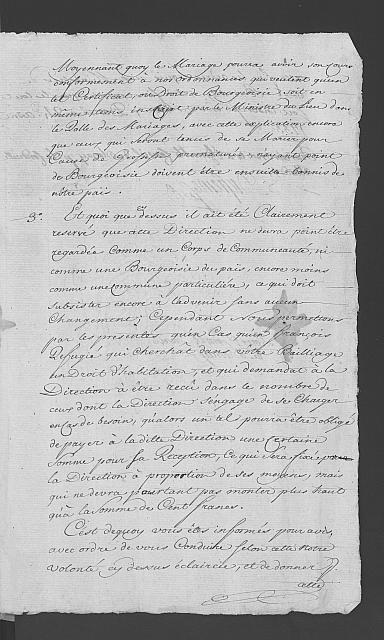 Moyennant quoy le Mariage pourra avoir son cours
conformement à nos ordonnances, qui veulent qu'un
tel Certificat, ou Droit de Bourgeoisie soit en
même tems inscript par le Ministre du Lieu dans
le Rolle des Mariages, avec cette explication encore
que ceux qui seront tenus de se Marier pour
Cause de Grossesse prematurée n'ayant point
de Bourgeoisie doivent être ensuite bannis de
nôtre païs.
3.° Et quoi que cy dessus il ait été Clairement
reservé que cette Direction ne devra point être
regardée Comme un Corps de Communeauté, ni
comme une Bourgeoisie du païs, encore moins
comme une Commune particuliére, ce qui doit
subsister encore à l'advenir sans aucun
Changement; Cependant Nous permettons
par les presentes, qu'en Cas qu'un françois
Refugié qui Cherchât dans vôtre Bailliage
un Droit d'habitation, et qui demandat à la
Direction à être reçû dans le nombre de
ceux dont la Direction s'engage de se Charger
en cas de besoin, qu'alors un tel pourra être obligé
de payer à la ditte Direction une Certaine
Somme pour sa Reception, Ce qui Sera fixé
la Direction à proportion de ses moyens, mais
qui ne devra pourtant pas monter plus haut
qu'à la somme de Cent francs.
C'est dequoy vous êtes informés pour avis,
avec ordre de vous Conduire selon cette Nôtre
volonté cy dessus éclaircie, et de donner
cette